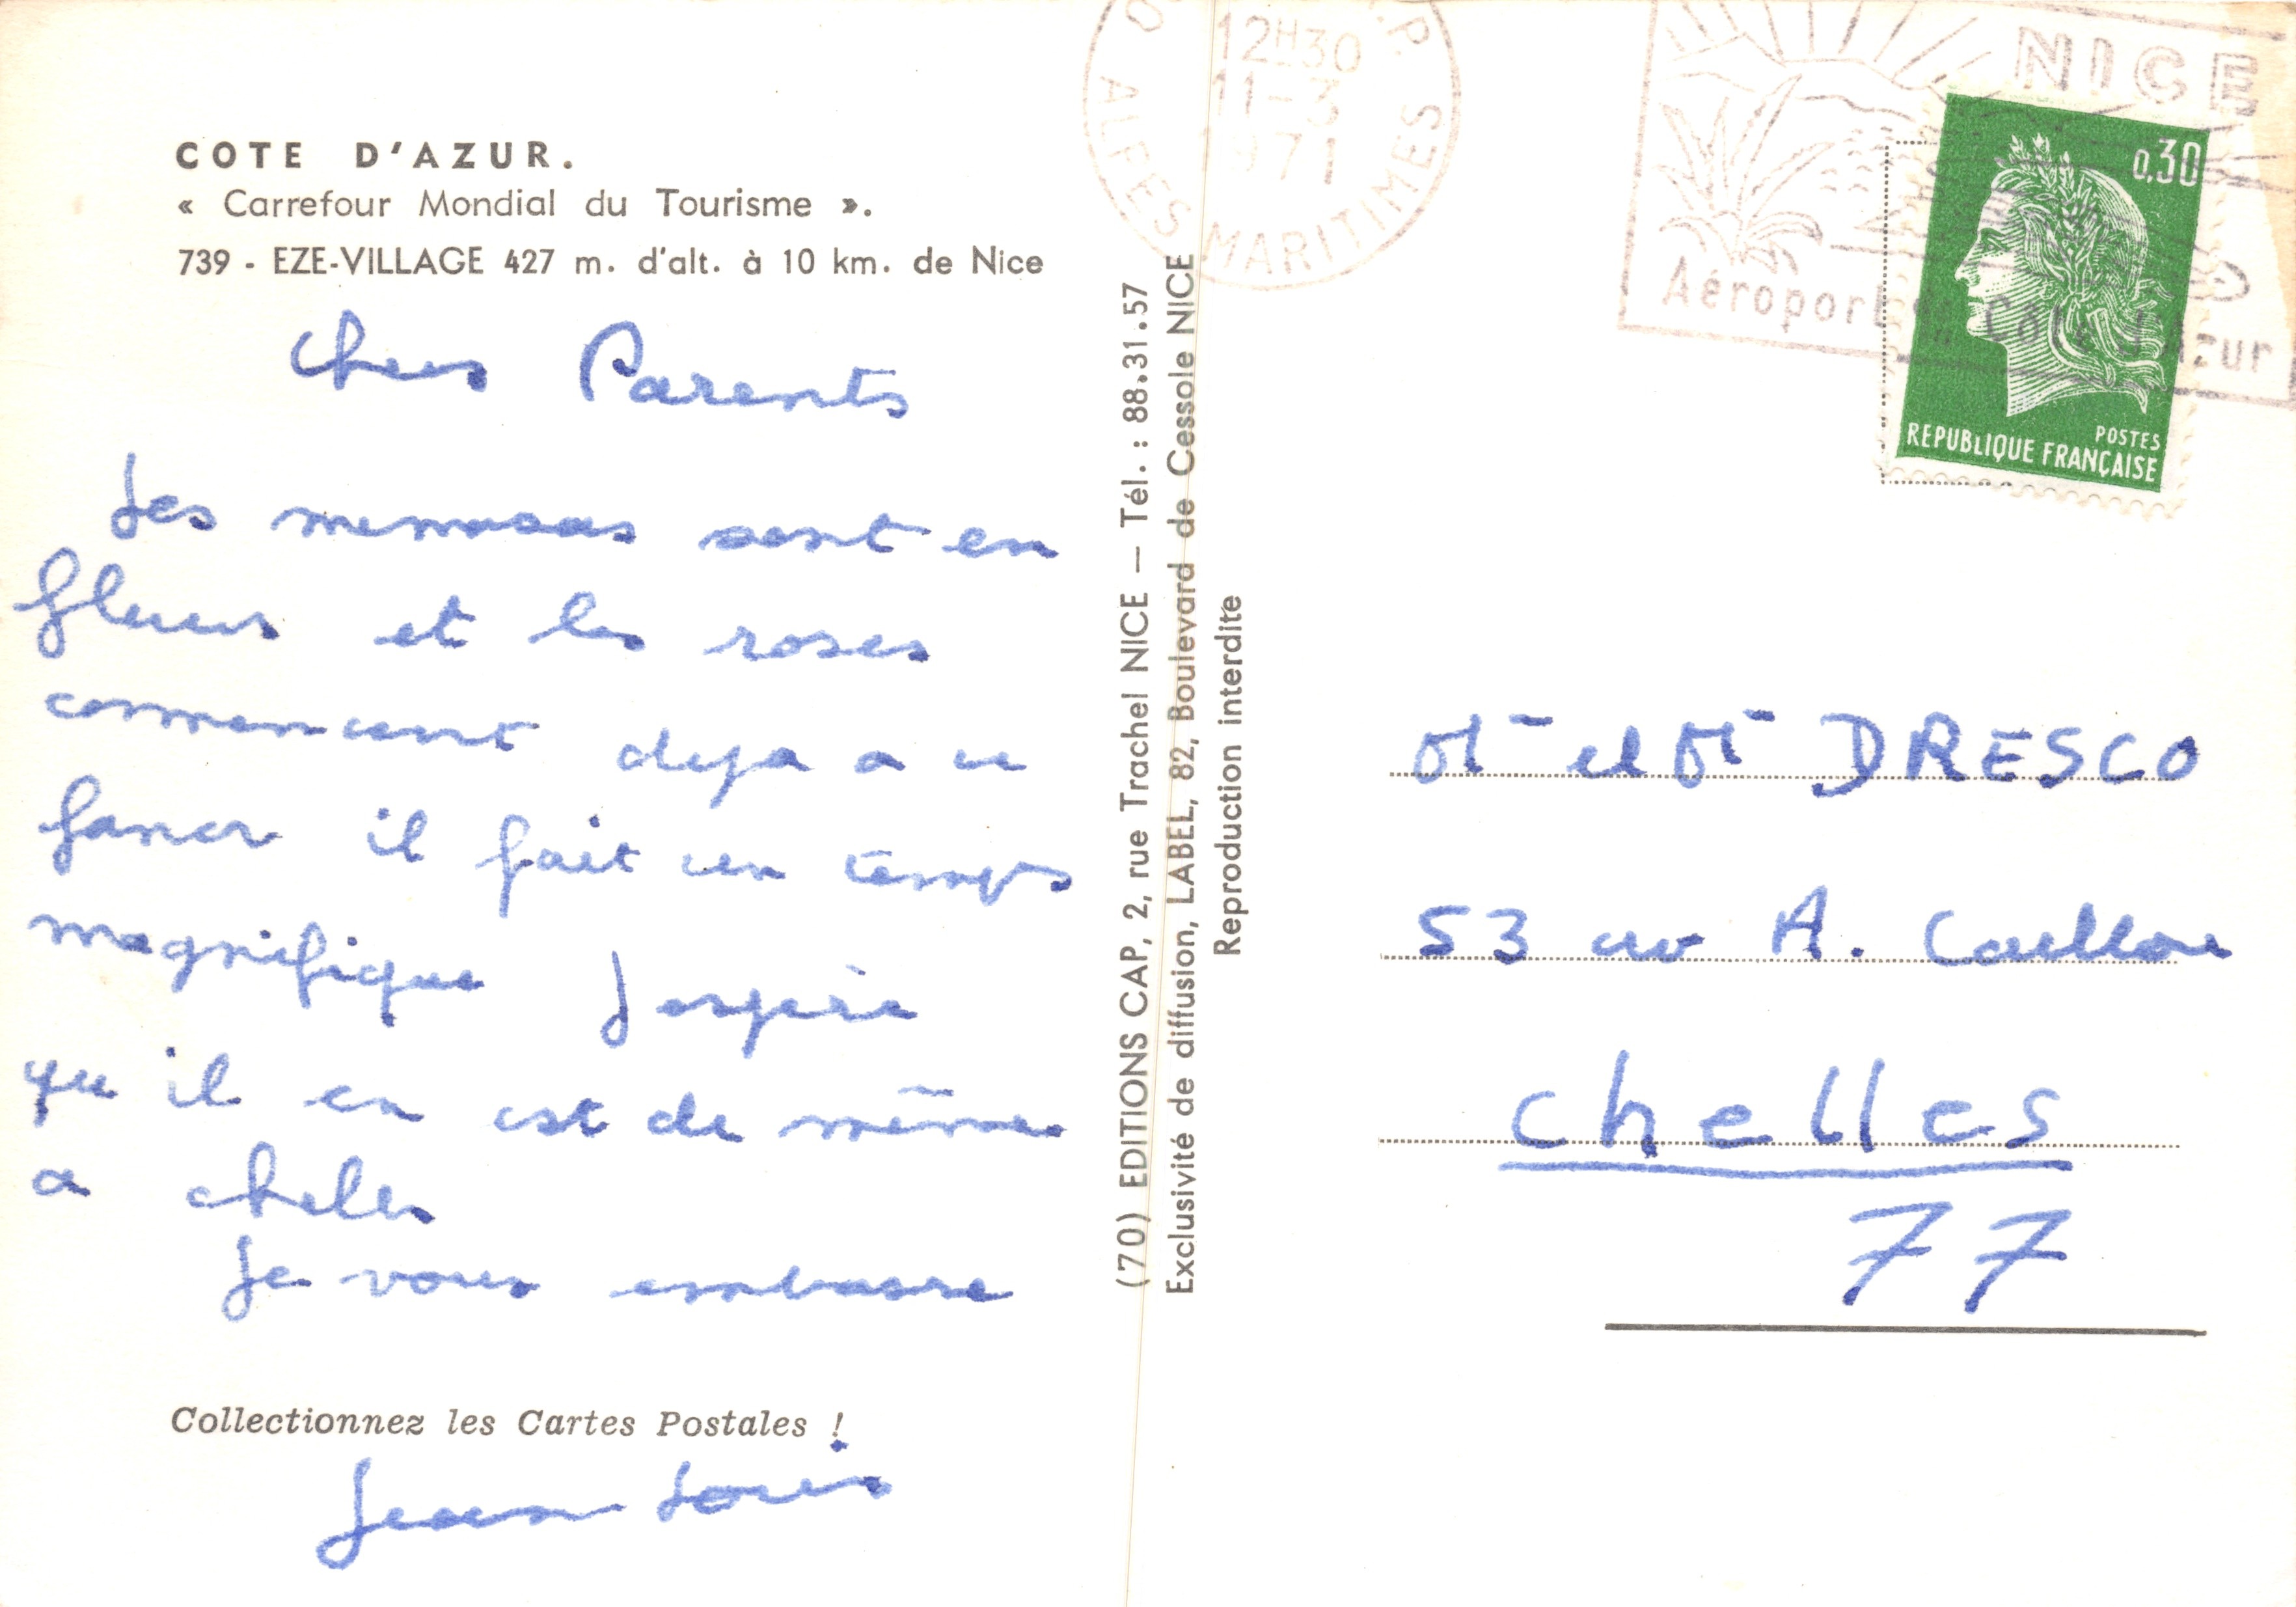 COTE D'AZUR.
« Carrefour Mondial du Tourisme ».
739 - EZE-VILLAGE 427 m. d'alt. à 10 km. de Nice
Chers Parents
Les memosas sont en
fleurs et les roses
commencent deja a ce
faner il fait un temps
magnifique J espère
qu il en est de même
a chelles
Je vous embrasse
Collectionnez les Cartes Postales !
Jean Louis
(70) EDITIONS CAP, 2, rue Trachel NICE — Tél. : 88.31.57
Exclusivité de diffusion, LABEL, 82, Boulevard de Cessole NICE
Reproduction interdite
12H30
11-3
1971
ALPES MARITIMES
NICE
Aéroport de la Côte d'Azur
0,30
POSTES
REPUBLIQUE FRANÇAISE
Mr et Mr DRESCO
53 av A. Caillou
chelles
77